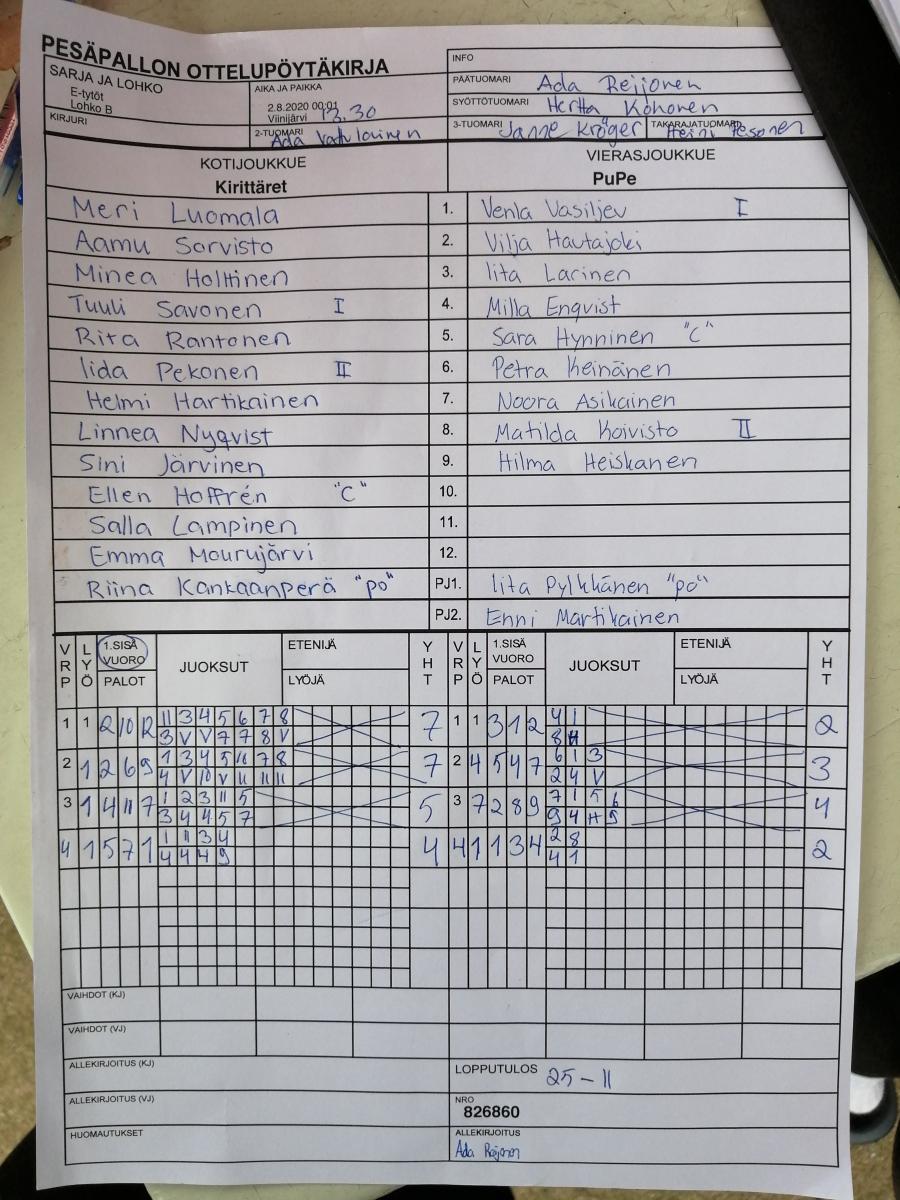 PESÄPALLON OTTELUPÖYTÄKIRJA
SARJA JA LOHKO
E-tytöt
Lohko B
AIKA JA PAIKKA
2.8.2020 00:01 13.30
Viinijärvi
INFO
PÄÄTUOMARI Ada Reijonen
SYÖTTÖTUOMARI Hertta Kohonen
KIRJURI
2-TUOMARI Ada
3-TUOMARI Janne Kröger
TAKARAJATUOMARI Heini Pesonen
KOTIJOUKKUE VIERASJOUKKUE
Kirittäret PuPe
Meri Luomala 1. Venla Vasiljev I
Aamu Sorvisto 2. Vilja Hautajoki
Minea Holttinen 3. Iita Larinen
Tuuli Savonen I 4. Milla Enqvist
Rita Rantonen 5. Sara Hynninen "C"
Iida Pekonen II 6. Petra Keinänen
Helmi Hartikainen 7. Noora Asikainen
Linnea Nyqvist 8. Matilda Koivisto II
Sini Järvinen 9. Hilma Heiskanen
Ellen Hoffrén "C" 10.
Salla Lampinen 11.
Emma Mourujärvi 12.
Riina Kankaanperä "po" PJ1. Iita Pylkkänen "po"
PJ2. Enni Martikainen
VRP LYÖ 1.SISÄ VUORO PALOT JUOKSUT ETENIJÄ LYÖJÄ YHT VRP LYÖ 1.SISÄ VUORO PALOT JUOKSUT ETENIJÄ LYÖJÄ YHT
1 1 2 10 12 11 3 4 5 6 7 8 7 1 1 3 1 2 4 1 2
3 V V 7 7 8 V 8 H
2 1 2 6 9 1 3 4 5 11 7 8 7 2 4 5 4 7 6 1 3 3
4 V 10 V 11 11 11 2 4 V
3 1 4 11 7 1 2 3 11 5 5 3 7 2 8 9 7 1 5 6 4
3 4 4 5 7 9 4 H 5
4 1 5 7 1 1 11 3 4 4 4 1 1 3 4 2 8 2
4 4 4 9 4 1
VAIHDOT (KJ)
VAIHDOT (VJ)
ALLEKIRJOITUS (KJ)
LOPPUTULOS 25-11
ALLEKIRJOITUS (VJ)
NRO
826860
HUOMAUTUKSET
ALLEKIRJOITUS
Ada Reijonen